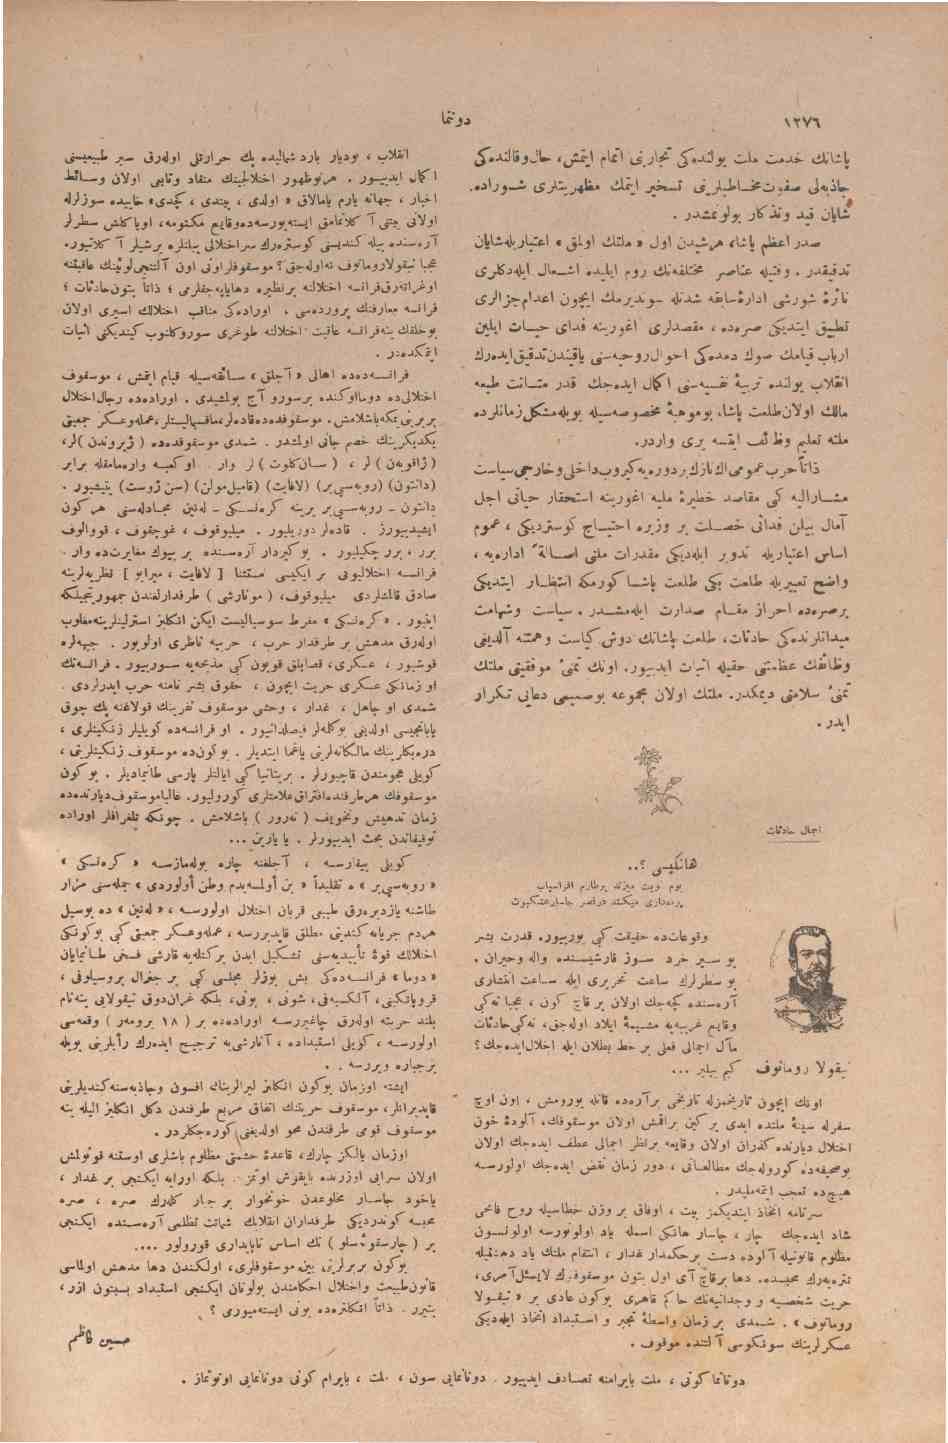 ١٢٧٦
دوننما
پاشانك خدمت ملت يولنده‌كى تجاربنى اتمام ايتمش، حال وقالنده‌كى
جاذبه‌لى صفوت مخاطبلرينى تسخير ايتمك مظهريتلرى شوراده
شايان قيد وتذكار بولونمشدر .
صدر اعظم پاشا، هرشيدن اول « ملتك اولمق » اعتباريله شايان
تدقيقدر . وقتيله عناصر مختلفه‌نك روم ايليده اشعال ايله‌دكلرى
نائرهٔ شورشى ادارهٔ سابقه شدتله سونديرمك ايچون اعدام جزالرى
تطبيق ايتديكى صره‌ده ، مقصدلرى اغورينه فداى حيات ايلين
ارباب قيامك صوك دمده‌كى احوال روحيه‌سنى ياقيندن تدقيق ايده‌رك
انقلاب يولنده تربيهٔ نفسيه‌سنى اكمال ايده‌جك قدر متانت طبعه
مالك اولان طلعت پاشا، بوموهبهٔ مخصوصه‌سيله بويله مشكل زمانلرده
ملته تعليم وظائف ايتسه يرى واردر.
ذاتاً حرب عمومى اك نازك بر دوره‌يه كيروب داخلى وخارجى سياست
مشاراليه كبى مقاصد خطيرهٔ مليه اغورينه استحقار حياتى اجل
آمال بيلن فدائى خصلت بر وزيره احتياج كوسترديكى ، عموم
اساس اعتباريله تدوير ايله‌ديكى مقدرات ملتى اصالةً اداره‌يه ،
واضح تعبيريله طلعت بكى طلعت پاشا كورمكه انتظار ايتديكى
برصره‌ده احراز مقام صدارت ايله‌مشدر . سياست وشهامت
ميدانلرنده‌كى حادثات، طلعت پاشانك دوش كياست وهمتنه آلديغى
وظائفك عظمتنى حقيله اثبات ايدييور. اونك تمنئ موفقيتى ملتك
تمنئ سلامتى ديمكدر. ملتك اولان مجموعه بوصميمى دعايى تكرار
ايدر .
اجمال حادثات
هانكيسى ؟..
بوم نوبت ميزند برطارم افراسياب
پرده‌دارى ميكند درقصر
وقوعات‌ده حقيقت كبى يورييور. قدرت بشر
بو سير خرد سوز قارشيسنده واله وحيران .
بو سطرلرك ساعت تحريرى ايله ساعت انتشارى
آره‌سنده كچه‌جك اولان بر قاچ كون ، عجبا نه‌كى
وقايع غريبه‌يه مشيمهٔ ايلاد اوله‌جق، نه‌كى حادثات
مآل اجمالى فعلى بر خط بطلان ايله اخلال ايده‌جك؟
كيم بيلير ...
نيقولا رومانوف
اونك ايچون تاريخمزله تاريخى برآره‌ده قاتله يورومش ، اون اوچ
سفرله سينهٔ ملتده ابدى بر كين براقمش اولان موسقوفك، آلودهٔ خون
اختلال ديارنده كذران اولان وقايعه برنظر اجمالى عطف ايده‌جك اولان
بوصحيفه‌ده كوروله‌جك مطالعاتى ، دور زمان نقض ايده‌جك اولورسه
هيچ‌ده تعجب ايتمه‌ملىدر .
سرنامه اتخاذ ايتديكمز بيت ، اوفاق بر وزن خطاسيله روح فاتحى
شاد ايده‌جك . چار ، جاسار هانكى اسمله ياد اولونورسه اولونسون
مظلوم قانيله آلوده دست برحكمدار غدار ، انتقام ملتك ياد دهشتيله
تتره‌يه‌رك محبسده. دها برقاچ آى اول بتون موسقوفلرك لايسئل آمرى،
حريت شخصيه و وجدانيه‌نك حاكم قاهرى بوكون عادى بر « نيقولا
رومانوف » . شمدى بر زمان واسطهٔ تجبر و استبداد اتخاذ ايله‌ديكى
عسكرلرينك سونكوسى آلتنده موقوف .
انقلاب ، بوديار بارد شماليده پك حرارتلى اوله‌رق سير طبيعيسنى
اكمال ايدييور . هرنوظهور اختلالجينك منقاد وتابعى اولان وسائط
اخبار ، جهانه يارم يامالاق « اولدى ، بيتدى ، كچدى» خابيده سوزلرله
اولانى بيتنى آكلاتمامق ايسته‌يورسه‌ده وقايع مكتومه، اويا كلش سطرلر
آره‌سنده بيله كنديسنى كوستره‌رك سر اختلالى بيلنلره برشيلر آكلاتيور.
عجبا نيقولا رومانوف نه اوله‌جق؟ موسقوفلر اونى اون آلتنجى لوئينك عاقبتنه
اوغراته‌رق فرانسه اختلالنه برنظيره دهايا په‌جقلرمى ؛ ذاتاً بتون حادثات ؛
فرانسه معارفنك پرورده‌سى ، اوراده‌كى مناقب اختلالك اسيرى اولان
بوخلقك ينه فرانسه عاقبت اختلالنه طوغرى سوروكلنوب كيتديكنى اثبات
ايتمكده‌در .
فرانسه‌ده‌ده اهالى « آجلق » سائقه‌سيله قيام ايتمش ، موسقوف
اختلالى‌ده دوما اوكنده برسورو آچ بولمشيدى . اوراده‌ده رجال اختلال
بربرينى يمكه باشلامش. موسقوفده‌ده قاده‌لر، ماقسيماليستلر، عمله وعسكر جمعيتى
يكديكرينك خصم جانى اولمشدر . شمدى موسقوفده‌ده ( ژيروندن ) لر،
( ژاقوبه‌ن ) لر ، ( سان كلوت ) لر وار . او كعبه وارمامقله برابر
(دانتون) (روبه‌سپى‌ير) (لافايت) (قاميل مولن) (سن ژوست) يتيشيور .
دانتون ـ روبه‌سپى‌ير يرينه كره‌نسكى ـ له‌نين مجادله‌سنى هركون
ايشيدييورز . قاده‌لر دوريليور . ميليوقوف ، غوچقوف ، قووالوف
برر ، برر چكيليور . بو كيردار آره‌سنده بر بيوك مغايرت‌ده وار .
فرانسه اختلاليونى بر ايكيسى مستثنا [ لافايت ، ميرابو ] نظريه‌لرينه
صادق قالمشلردى ميليوقوف، ( مونارشى ) طرفدارلغندن جمهوريتجيلكه
اينيور . « كره‌نسكى » مفرط سوسياليست ايكن انكليز استرلينلرينه مغلوب
اوله‌رق مدهش بر طرفدار حرب ، حربيه ناظرى اولويور . جبهه‌لره
قوشيور ، عسكرى، قصابلق قويون كبى مذبحه‌يه سورييور . فرانسه‌نك
او زمانكى عسكرى حريت ايچون ، حقوق بشر نامنه حرب ايدرلردى .
شمدى او جاهل ، غدار ، وحشى موسقوف نفرينك قولاغنه پك چوق
يابانجيسى اولديغى بوكلمه‌لر فيصلدانيور . او فرانسه‌ده كويليلر زنكينلرى ،
دره‌بكلرينك مالكانه‌لرينى ياغما ايتديلر . بوكون‌ده موسقوف زنكينلرينى ،
كويلى هجومندن قاچيورلر . بريتانيا كبى ايالتلر پارسى طانيماديلر . بوكون
موسقوفك هرطرفنده افتراق علامتلرى كورولييور. غالبا موسقوف ديارنده‌ده
زمان تدهيش وتخويف ( ته‌رور ) باشلامش . چونكه تلغرافلر اوراده
توقيفاتدن بحث ايدييورلر . يا يارين ...
كويلى بيقارسه ، آجلغنه چاره بوله‌مازسه « كره‌نسكى »
« روبه‌سپى‌ير » ه تقليداً « بن اولمسه‌يدم وطن اولوردى » جمله‌سنى مزار
طاشنه يازديره‌رق طبيعى قربان اختلال اولورسه ، « له‌نين » ده بوسيل
هردم جريانه كندينى مطلق قاپديررسه ، عمله وعسكر جمعيتى كبى بوكونكى
اختلالك قوهٔ تأييديه‌سنى تشكيل ايدن بركتله‌يه قارشى فسخى طانيمايان
« دوما » فرانسه‌ده‌كى بش يوزلر مجلسى كبى بر جنرال بروسيلوفى ،
قروپاتكينى ، آلكسيه‌فى، شونى ، بونى، بلكه غران‌دوق نيقولايى ينه نام
بلند حريته اوله‌رق چاغيررسه اوراده‌ده بر ( ١٨ برومه‌ر ) وقعه‌سى
اولورسه ، كويلى استبداده ، آنارشى‌يه ترجيح ايده‌رك رأيلرينى بويله
برجباره ويررسه . .
ايشته اوزمان بوكون انكليز ليرالرينك افسون وجاذبه‌سنه كنديلرينى
قاپديرانلر، موسقوف حريتنك اتفاق مربع طرفندن دكل انكليز اليله ينه
موسقوف قومى طرفندن محو اولديغنى كوره‌جكلردر .
اوزمان يالكز چارك، قاعدهٔ حشمتى مظلوم باشلرى اوستنه قونولمش
اولان سرايى اوزرنده بايقوش اوتمز . بلكه اورايه ايكنجى بر غدار ،
ياخود جاسار مخلوعدن خونخوار بر جبار كله‌رك صره ، صره
محبسه كوندرديكى طرفداران انقلابك شماتت تظلمى آره‌سنده ايكنجى
بر ( چارسقوئه‌سلو ) نك اساس ناپايدارى قورولور ....
بوكون بربرلرينى يين موسقوفلرى، اولكندن دها مدهش اولماسى
قانون طبيعت واختلال احكامندن بولونان ايكنجى استبداد بسبتون ازر،
بتيرر . ذاتاً انكلتره‌ده بونى ايسته‌ميورمى ؟
حسين كاظم
دونانما كونى ، ملت بايرامنه تصادف ايدييور . دونانمايى سون ، ملت ، بايرام كونى دونانمايى اونوتماز .